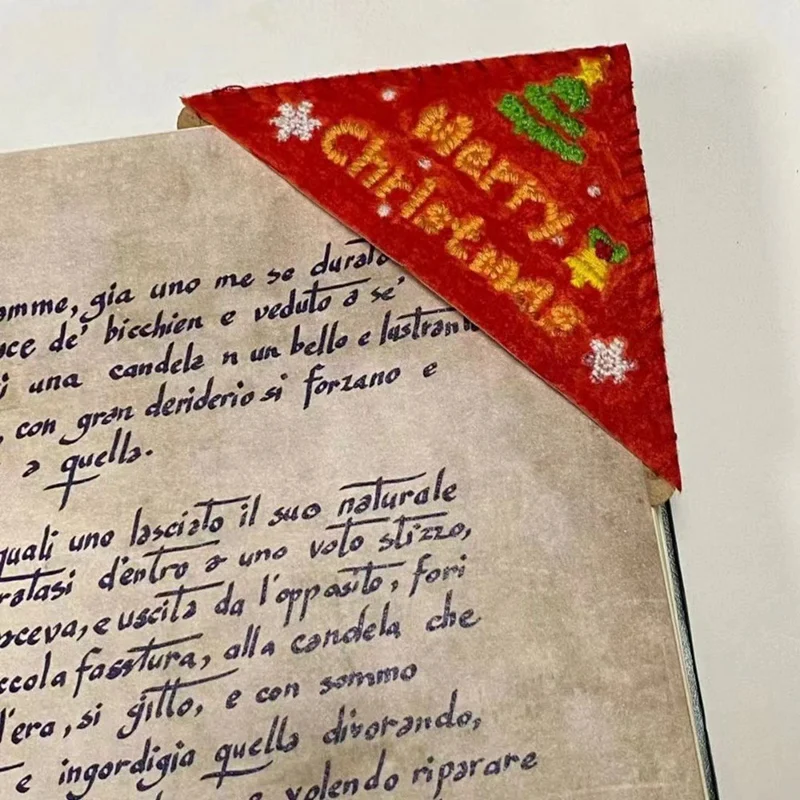 Merry
Christmas
amme, gia uno me se durato
uce de' bicchien e veduto a se'
i una candela n un bello e lustrante
, con gran deriderio si forzano e
a quella.
quali uno lasciato il suo naturale
ratasi dentro a uno voto stizzo,
aceva, e uscita da l'opposito, fori
ccola fasstura, alla candela che
l'era, si gitto, e con sommo
e ingordigia quella divorando,
volendo riparare